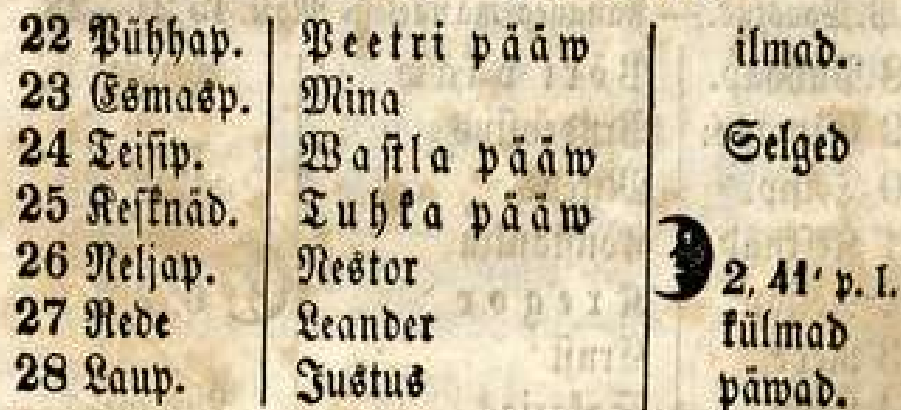 22 Pühhap. Peetri pääw ilmad.
23 Esmasp. Mina
24 Teisip. Wastla pääw Selged
25 Kesknäd. Tuhka pääw
26 Neljap. Nestor 2, 41' p. l.
27 Rede Leander külmad
28 Laup. Justus päwad.